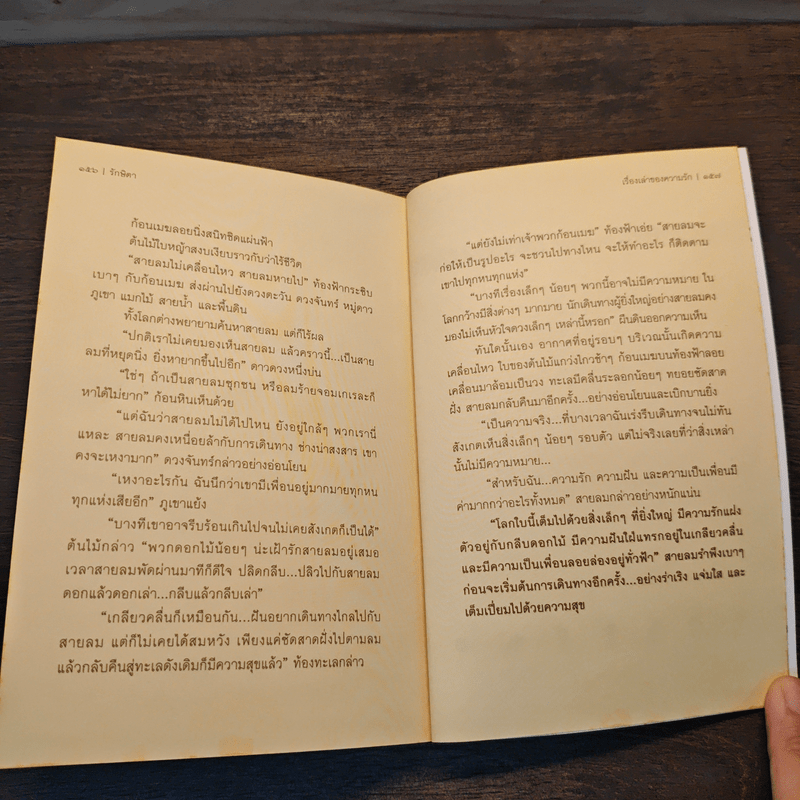 ๑๕๖ | รักษิตา
ก้อนเมฆลอยนิ่งสนิทชิดแผ่นฟ้า
ต้นไม้ใบหญ้าสงบเงียบราวกับว่าไร้ชีวิต
“สายลมไม่เคลื่อนไหว สายลมหายไป” ท้องฟ้ากระซิบ
เบาๆ กับก้อนเมฆ ส่งผ่านไปยังดวงตะวัน ดวงจันทร์ หมู่ดาว
ภูเขา แมกไม้ สายน้ำ และพื้นดิน
ทั้งโลกต่างพยายามค้นหาสายลม แต่ก็ไร้ผล
“ปกติเราไม่เคยมองเห็นสายลม แล้วคราวนี้...เป็นสาย
ลมที่หยุดนิ่ง ยิ่งหายากขึ้นไปอีก” ดาวดวงหนึ่งบ่น
“ใช่ๆ ถ้าเป็นสายลมซุกซน หรือลมร้ายจอมเกเรละก็
หาได้ไม่ยาก” ก้อนหินเห็นด้วย
“แต่ฉันว่าสายลมไม่ได้ไปไหน ยังอยู่ใกล้ๆ พวกเรานี่
แหละ สายลมคงเหนื่อยล้ากับการเดินทาง ช่างน่าสงสาร เขา
คงจะเหงามาก” ดวงจันทร์กล่าวอย่างอ่อนโยน
“เหงาอะไรกัน ฉันนึกว่าเขามีเพื่อนอยู่มากมายทุกหน
ทุกแห่งเสียอีก” ภูเขาแย้ง
“บางทีเขาอาจรีบร้อนเกินไปจนไม่เคยสังเกตก็เป็นได้”
ต้นไม้กล่าว “พวกดอกไม้น้อยๆ น่ะเฝ้ารักสายลมอยู่เสมอ
เวลาสายลมพัดผ่านมาทีก็ดีใจ ปลิดกลีบ...ปลิวไปกับสายลม
ดอกแล้วดอกเล่า...กลีบแล้วกลีบเล่า”
“เกลียวคลื่นก็เหมือนกัน...ฝันอยากเดินทางไกลไปกับ
สายลม แต่ก็ไม่เคยได้สมหวัง เพียงแค่ซัดสาดฝั่งไปตามลม
แล้วกลับคืนสู่ทะเลดังเดิมก็มีความสุขแล้ว” ท้องทะเลกล่าว
เรื่องเล่าของความรัก | ๑๕๗
“แต่ยังไม่เท่าเจ้าพวกก้อนเมฆ” ท้องฟ้าเอ่ย “สายลมจะ
ก่อให้เป็นรูปอะไร จะชวนไปทางไหน จะให้ทำอะไร ก็ติดตาม
เขาไปทุกหนทุกแห่ง”
“บางทีเรื่องเล็กๆ น้อยๆ พวกนี้อาจไม่มีความหมาย ใน
โลกกว้างมีสิ่งต่างๆ มากมาย นักเดินทางผู้ยิ่งใหญ่อย่างสายลมคง
มองไม่เห็นหัวใจดวงเล็กๆ เหล่านี้หรอก” ผืนดินออกความเห็น
ทันใดนั้นเอง อากาศที่อยู่รอบๆ บริเวณนั้นเกิดความ
เคลื่อนไหว ใบของต้นไม้แกว่งไกวช้าๆ ก้อนเมฆบนท้องฟ้าลอย
เคลื่อนมาล้อมเป็นวง ทะเลมีคลื่นระลอกน้อยๆ ทยอยซัดสาด
ฝั่ง สายลมกลับคืนมาอีกครั้ง...อย่างอ่อนโยนและเบิกบานยิ่ง
“เป็นความจริง...ที่บางเวลาฉันเร่งรีบเดินทางจนไม่ทัน
สังเกตเห็นสิ่งเล็กๆ น้อยๆ รอบตัว แต่ไม่จริงเลยที่ว่าสิ่งเหล่า
นั้นไม่มีความหมาย...
“สำหรับฉัน...ความรัก ความฝัน และความเป็นเพื่อนมี
ค่ามากกว่าอะไรทั้งหมด” สายลมกล่าวอย่างหนักแน่น
“โลกใบนี้เต็มไปด้วยสิ่งเล็กๆ ที่ยิ่งใหญ่ มีความรักแฝง
ตัวอยู่กับกลีบดอกไม้ มีความฝันใฝ่แทรกอยู่ในเกลียวคลื่น
และมีความเป็นเพื่อนลอยล่องอยู่ทั่วฟ้า” สายลมรำพึงเบาๆ
ก่อนจะเริ่มต้นการเดินทางอีกครั้ง...อย่างร่าเริง แจ่มใส และ
เต็มเปี่ยมไปด้วยความสุข